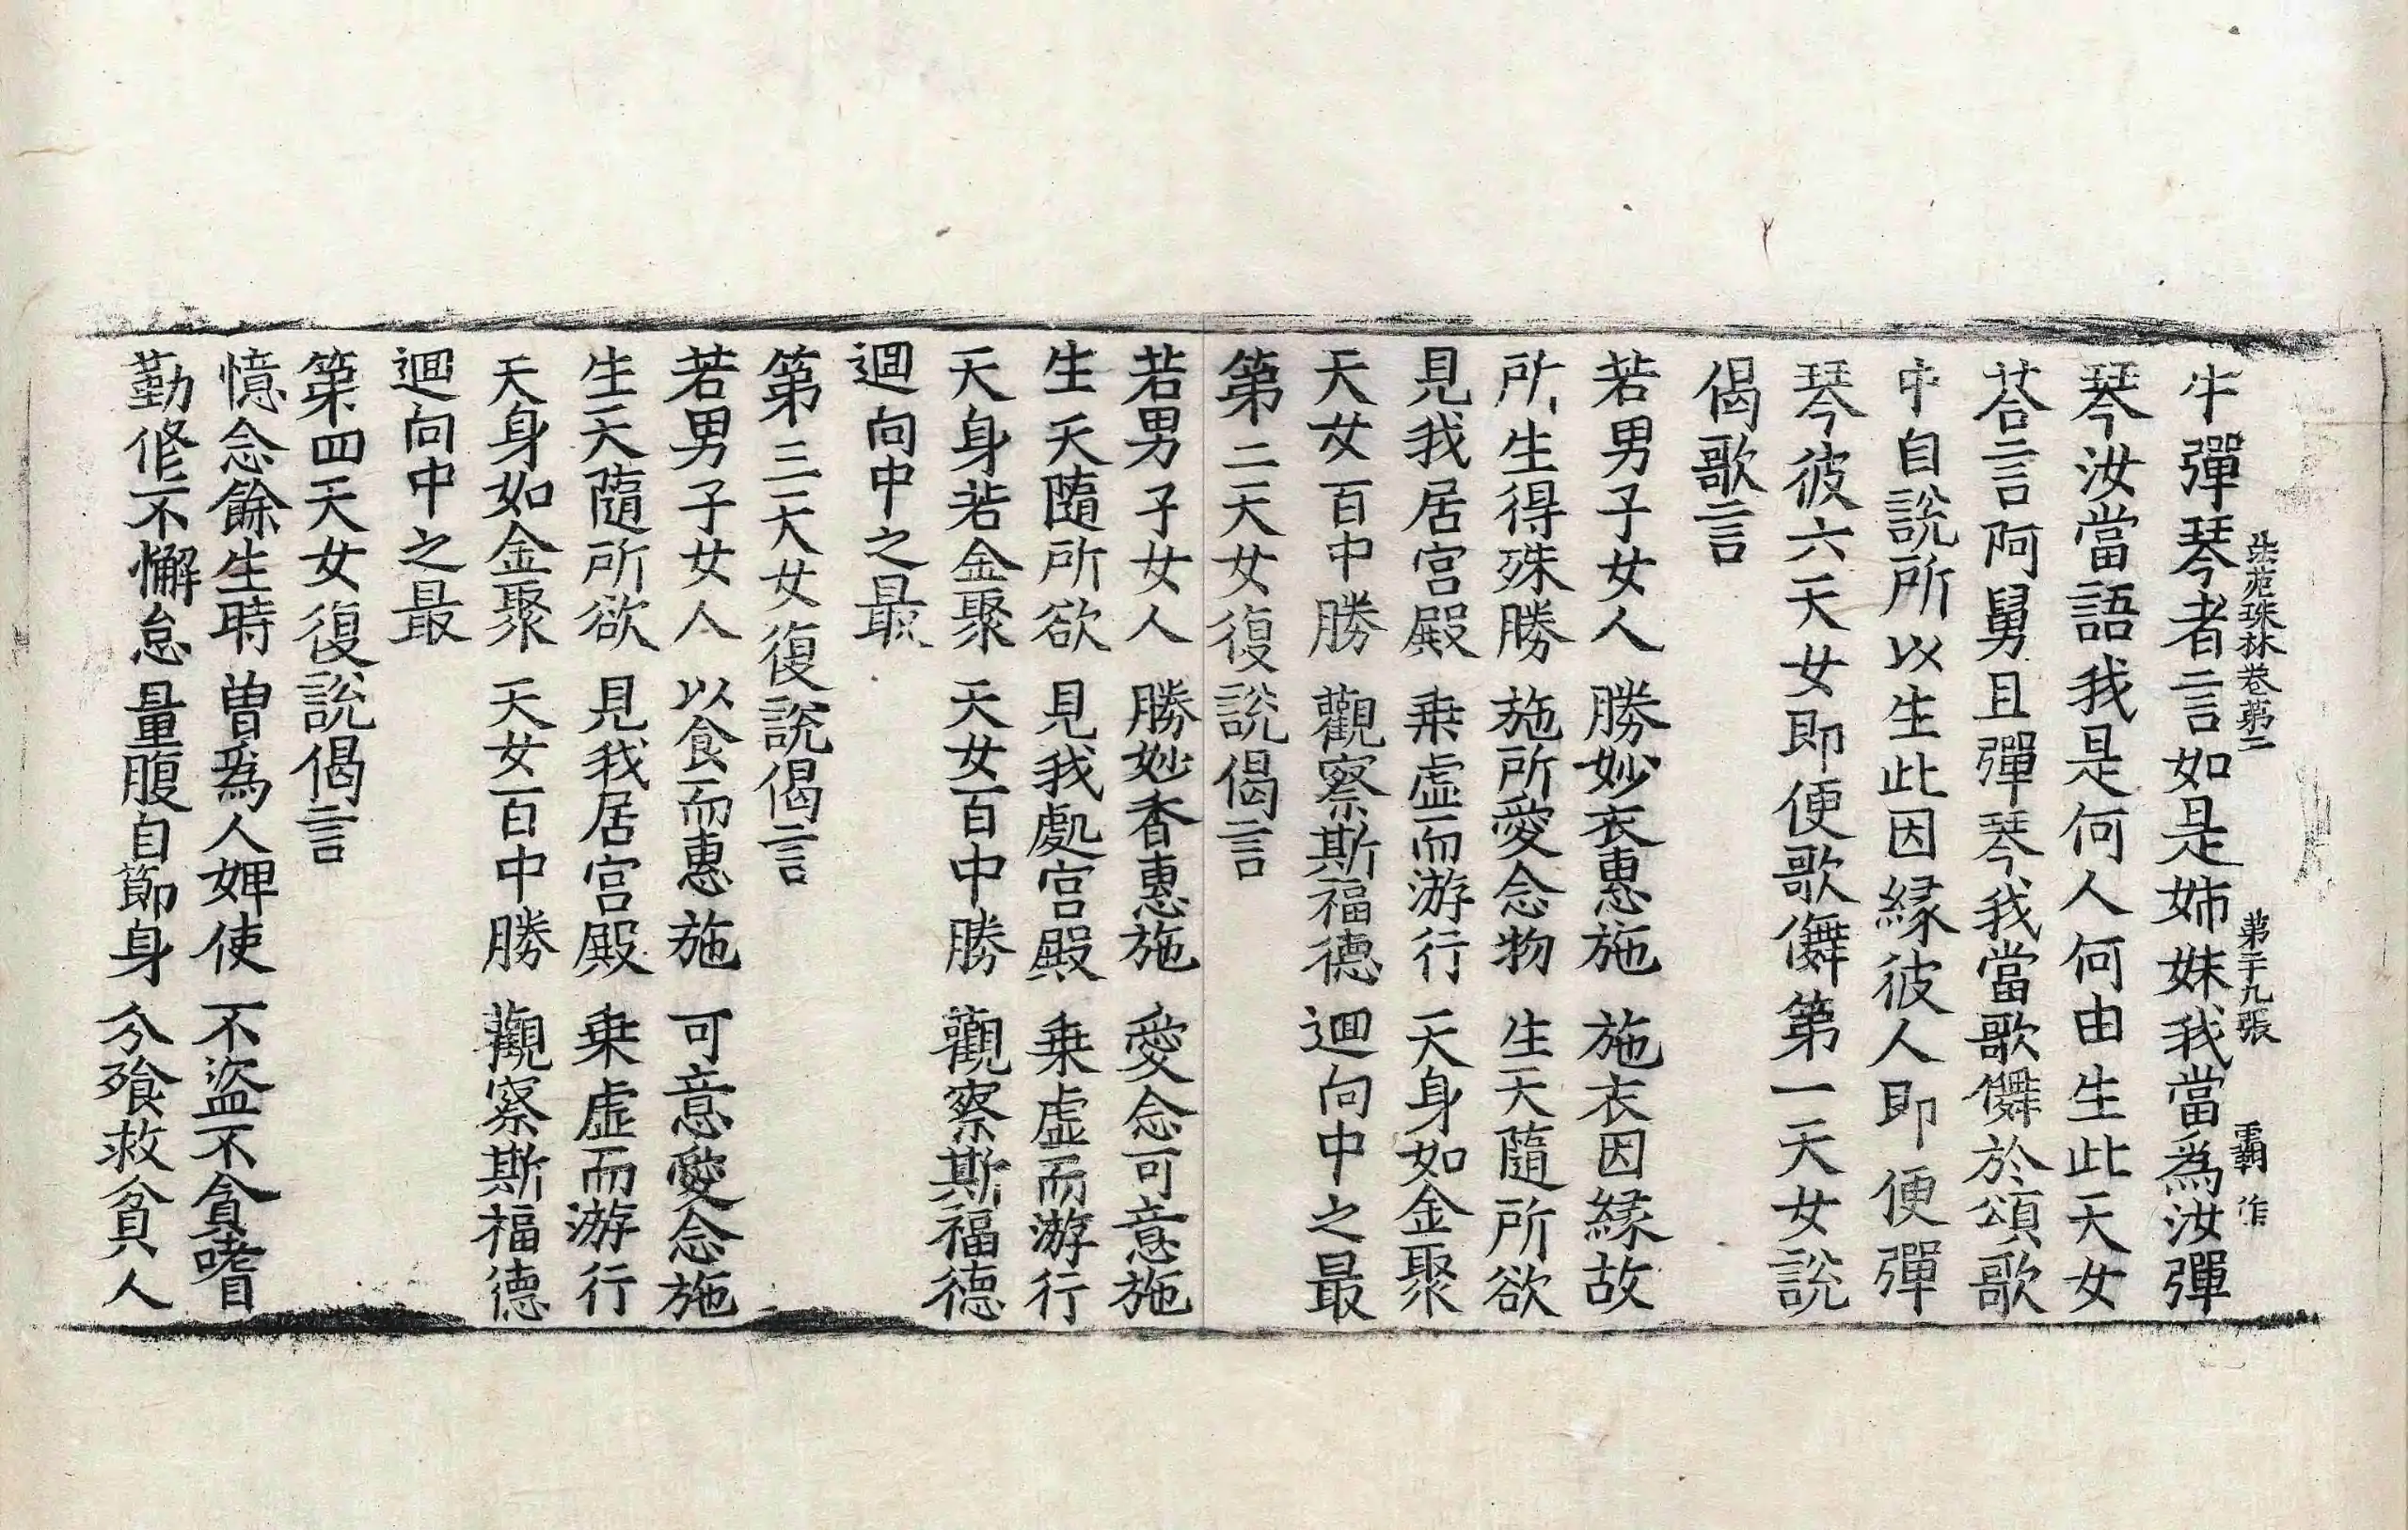 法苑珠林卷第二　第二十九張　覇　作
牛彈琴者言如是姊妹我當爲汝彈
琴汝當語我是何人何由生此天女
荅言阿舅且彈琴我當歌儛於頌歌
中自說所以生此因緣彼人即便彈
琴彼六天女即便歌儛第一天女說
偈歌言
若男子女人　勝妙衣惠施　施衣因緣故
所生得殊勝　施所愛念物　生天隨所欲
見我居宮殿　乗虛而游行　天身如金聚
天女百中勝　觀察斯福德　迴向中之最
第二天女復說偈言
若男子女人　勝妙香惠施　愛念可意施
生天隨所欲　見我處宮殿　乗虛而游行
天身若金聚　天女百中勝　觀察斯福德
迴向中之最
第三天女復說偈言
若男子女人　以食而惠施　可意愛念施
生天隨所欲　見我居宮殿　乗虛而游行
天身如金聚　天女百中勝　觀察斯福德
迴向中之最
第四天女復說偈言
憶念餘生時　曽爲人婢使　不盜不貪嗜
勤修不懈怠　量腹自節身　分飡救貧人